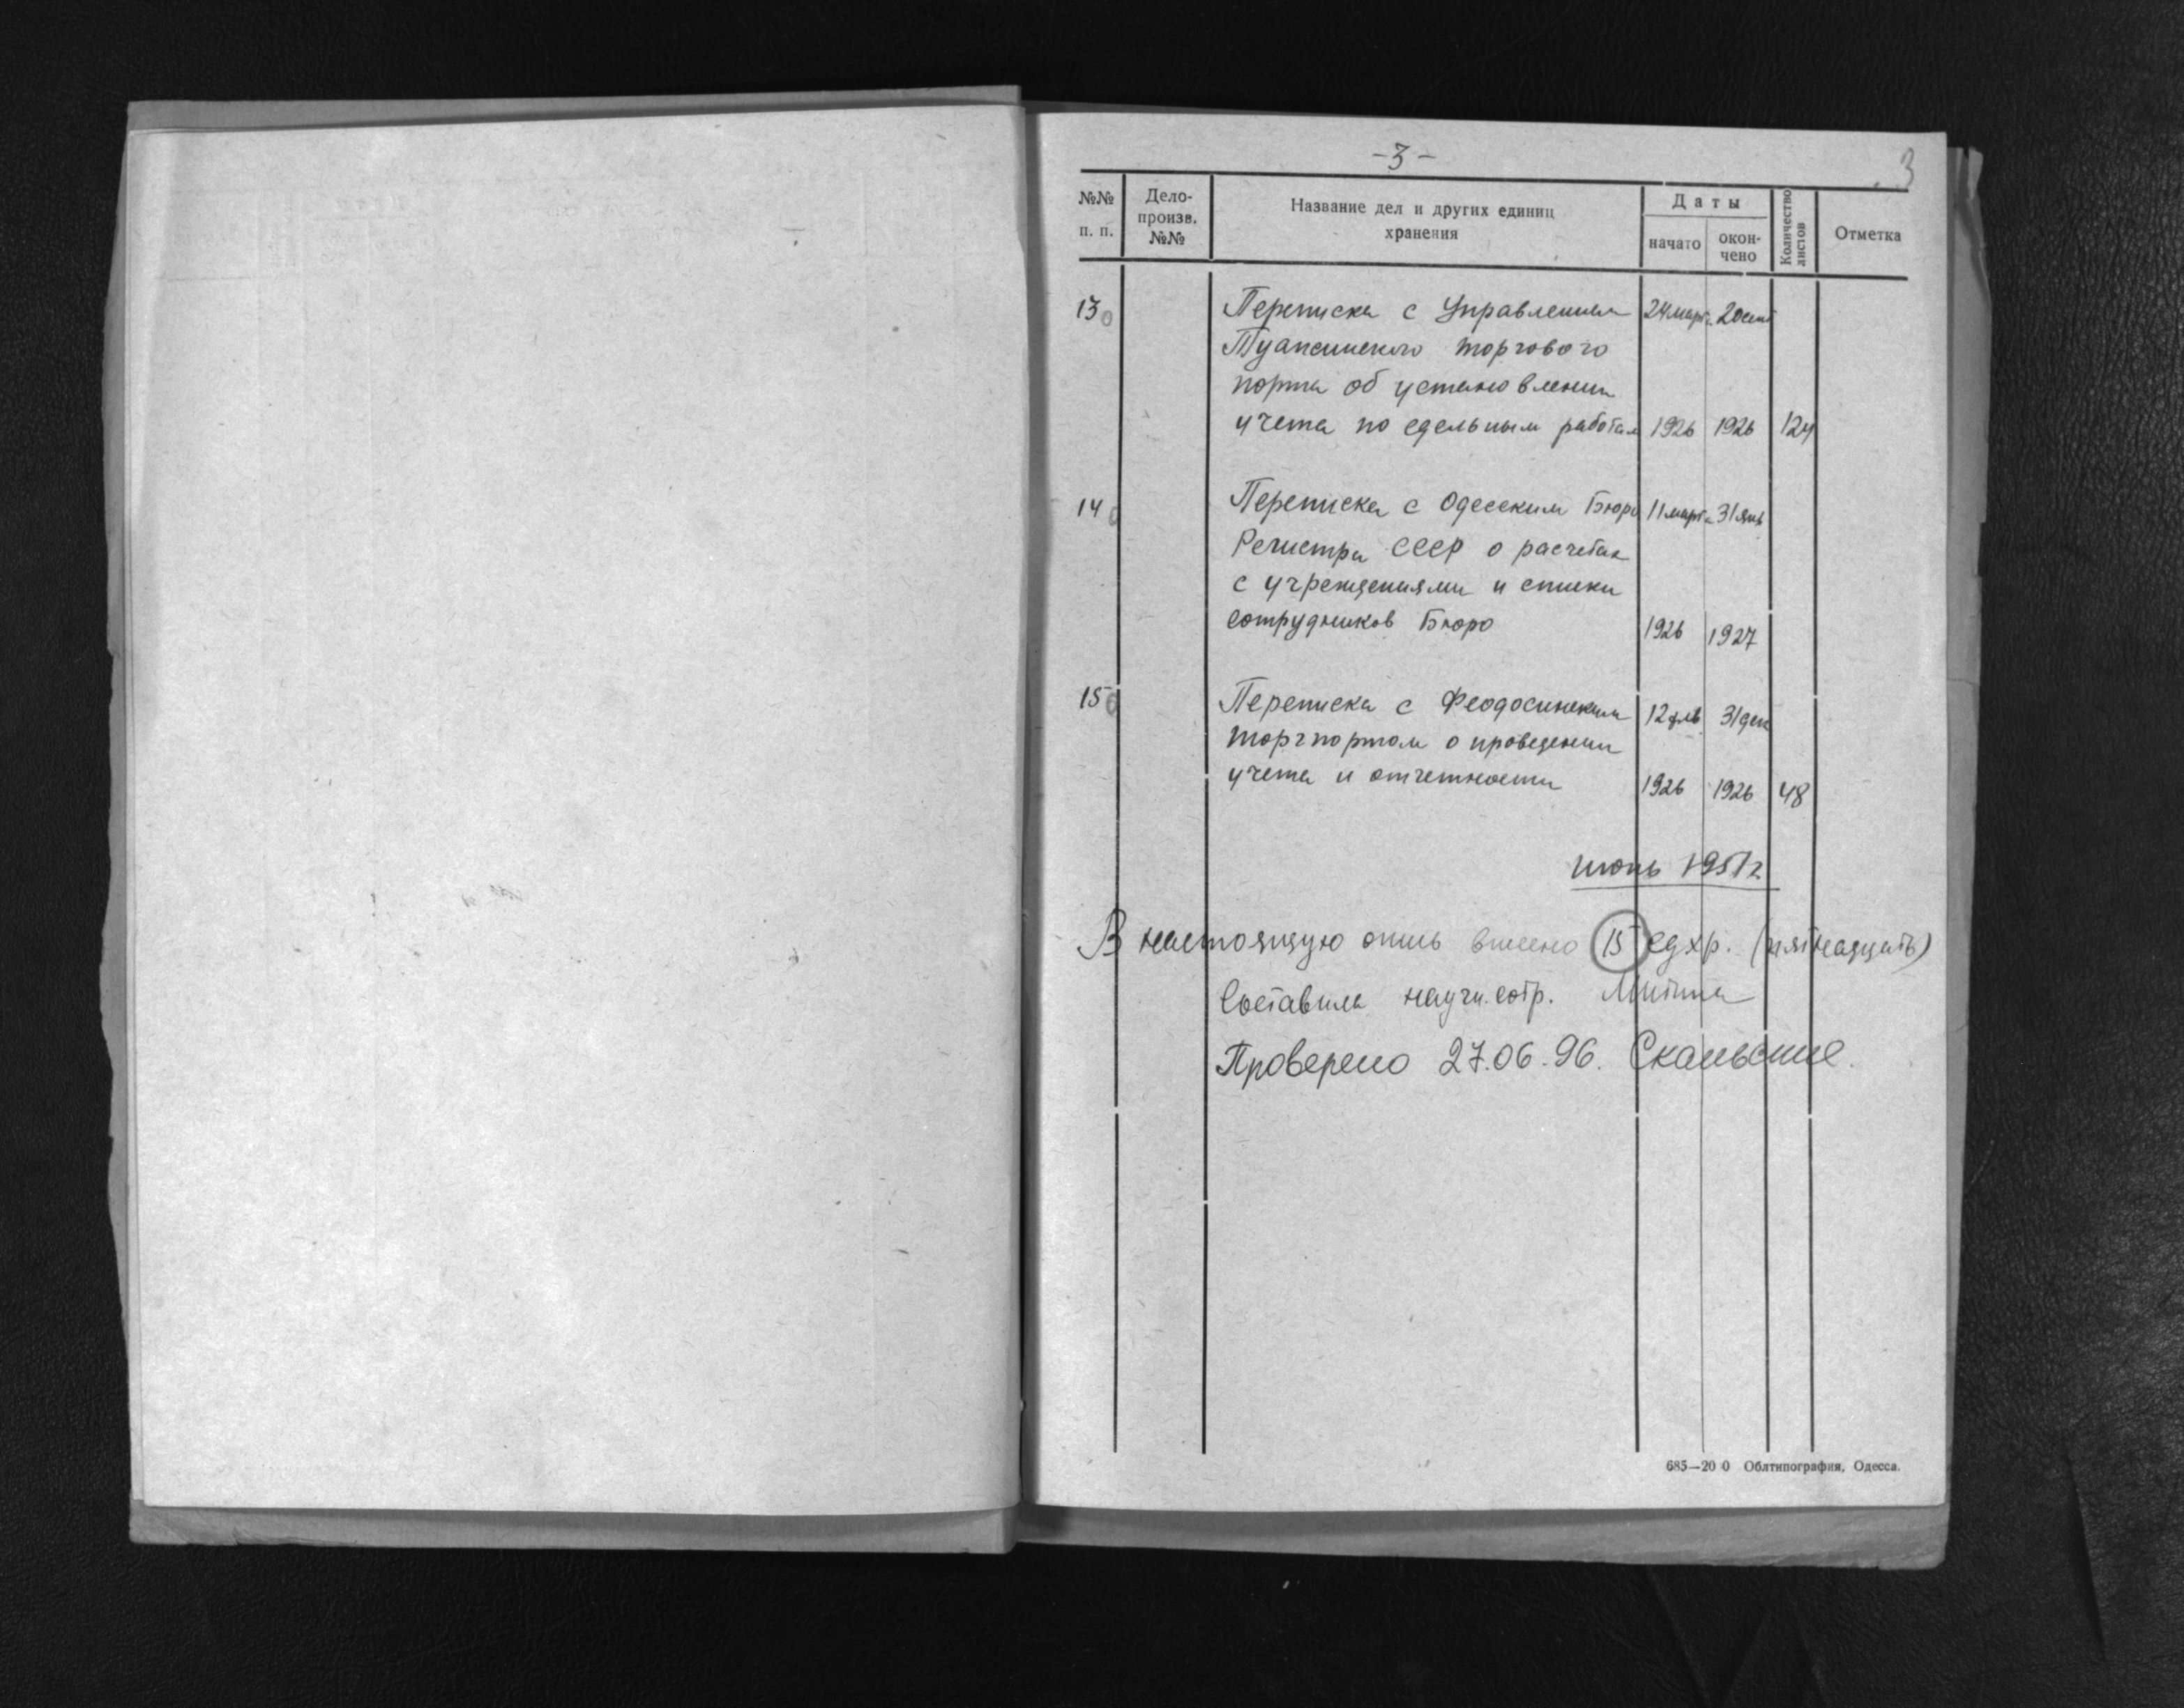 -3-
3
№№ п. п.
Дело-произв. №№
Название дел и других единиц хранения
Даты
начато
окончено
Количество листов
Отметка
13 Переписка с Управлением 24 марта 20 сент
Туапсинского торгового
порта об установлении
учета по сдельным работам 1926 1926 124
14 Переписка с Одесским Бюро 11 марта 31 янв
Регистра СССР о расчетах
с учреждениями и списки
сотрудников Бюро 1926 1927
15 Переписка с Феодосийским 12 янв 31 дек
торгпортом о проведении
учета и отчетности 1926 1926 48
июнь 1951 г
В настоящую опись внесено 15 ед хр. (пятнадцать)
Составила научн. сотр.
Проверено 27.06.96.
685—20 0 Облтипография, Одесса.